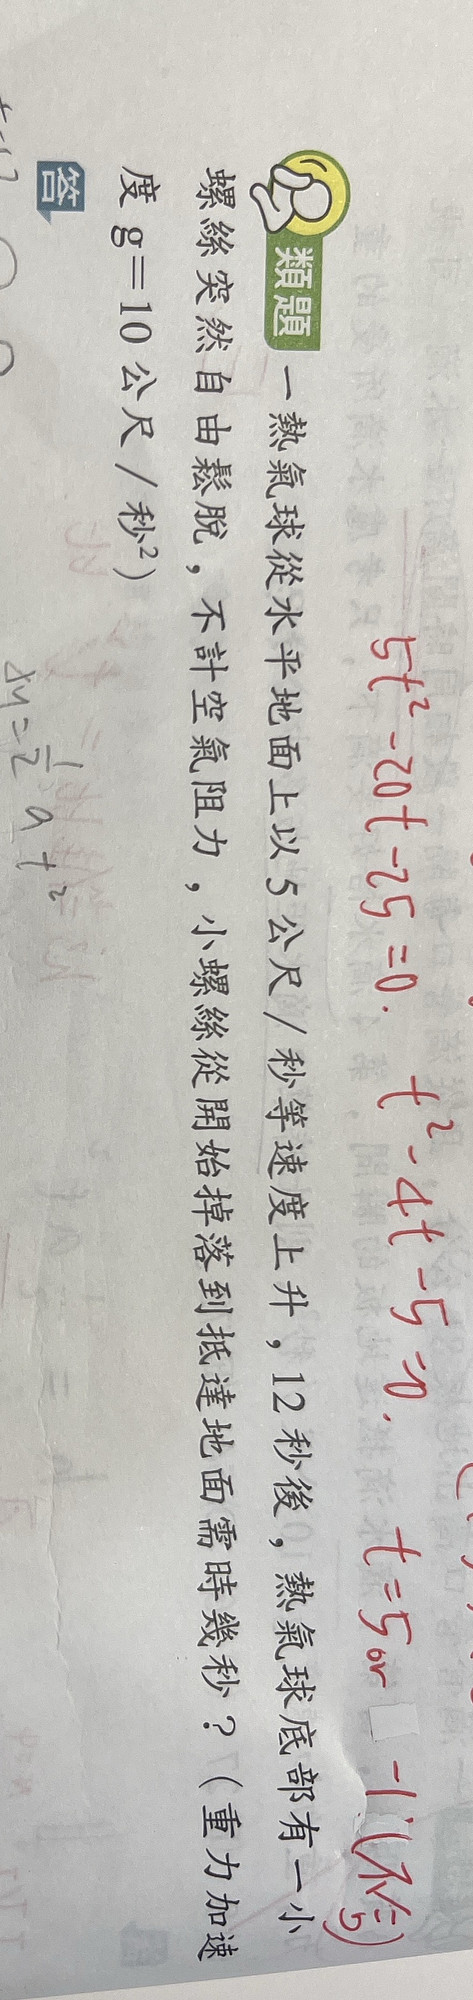 5t² - 20t - 25 = 0. t² - 4t - 5 = 0. t = 5 or -1 (不合)
類題 一熱氣球從水平地面上以 5 公尺/秒等速度上升，12 秒後，熱氣球底部有一小
螺絲突然自由鬆脫，不計空氣阻力，小螺絲從開始掉落到抵達地面需時幾秒？（重力加速
度 g＝10 公尺/秒²）
答